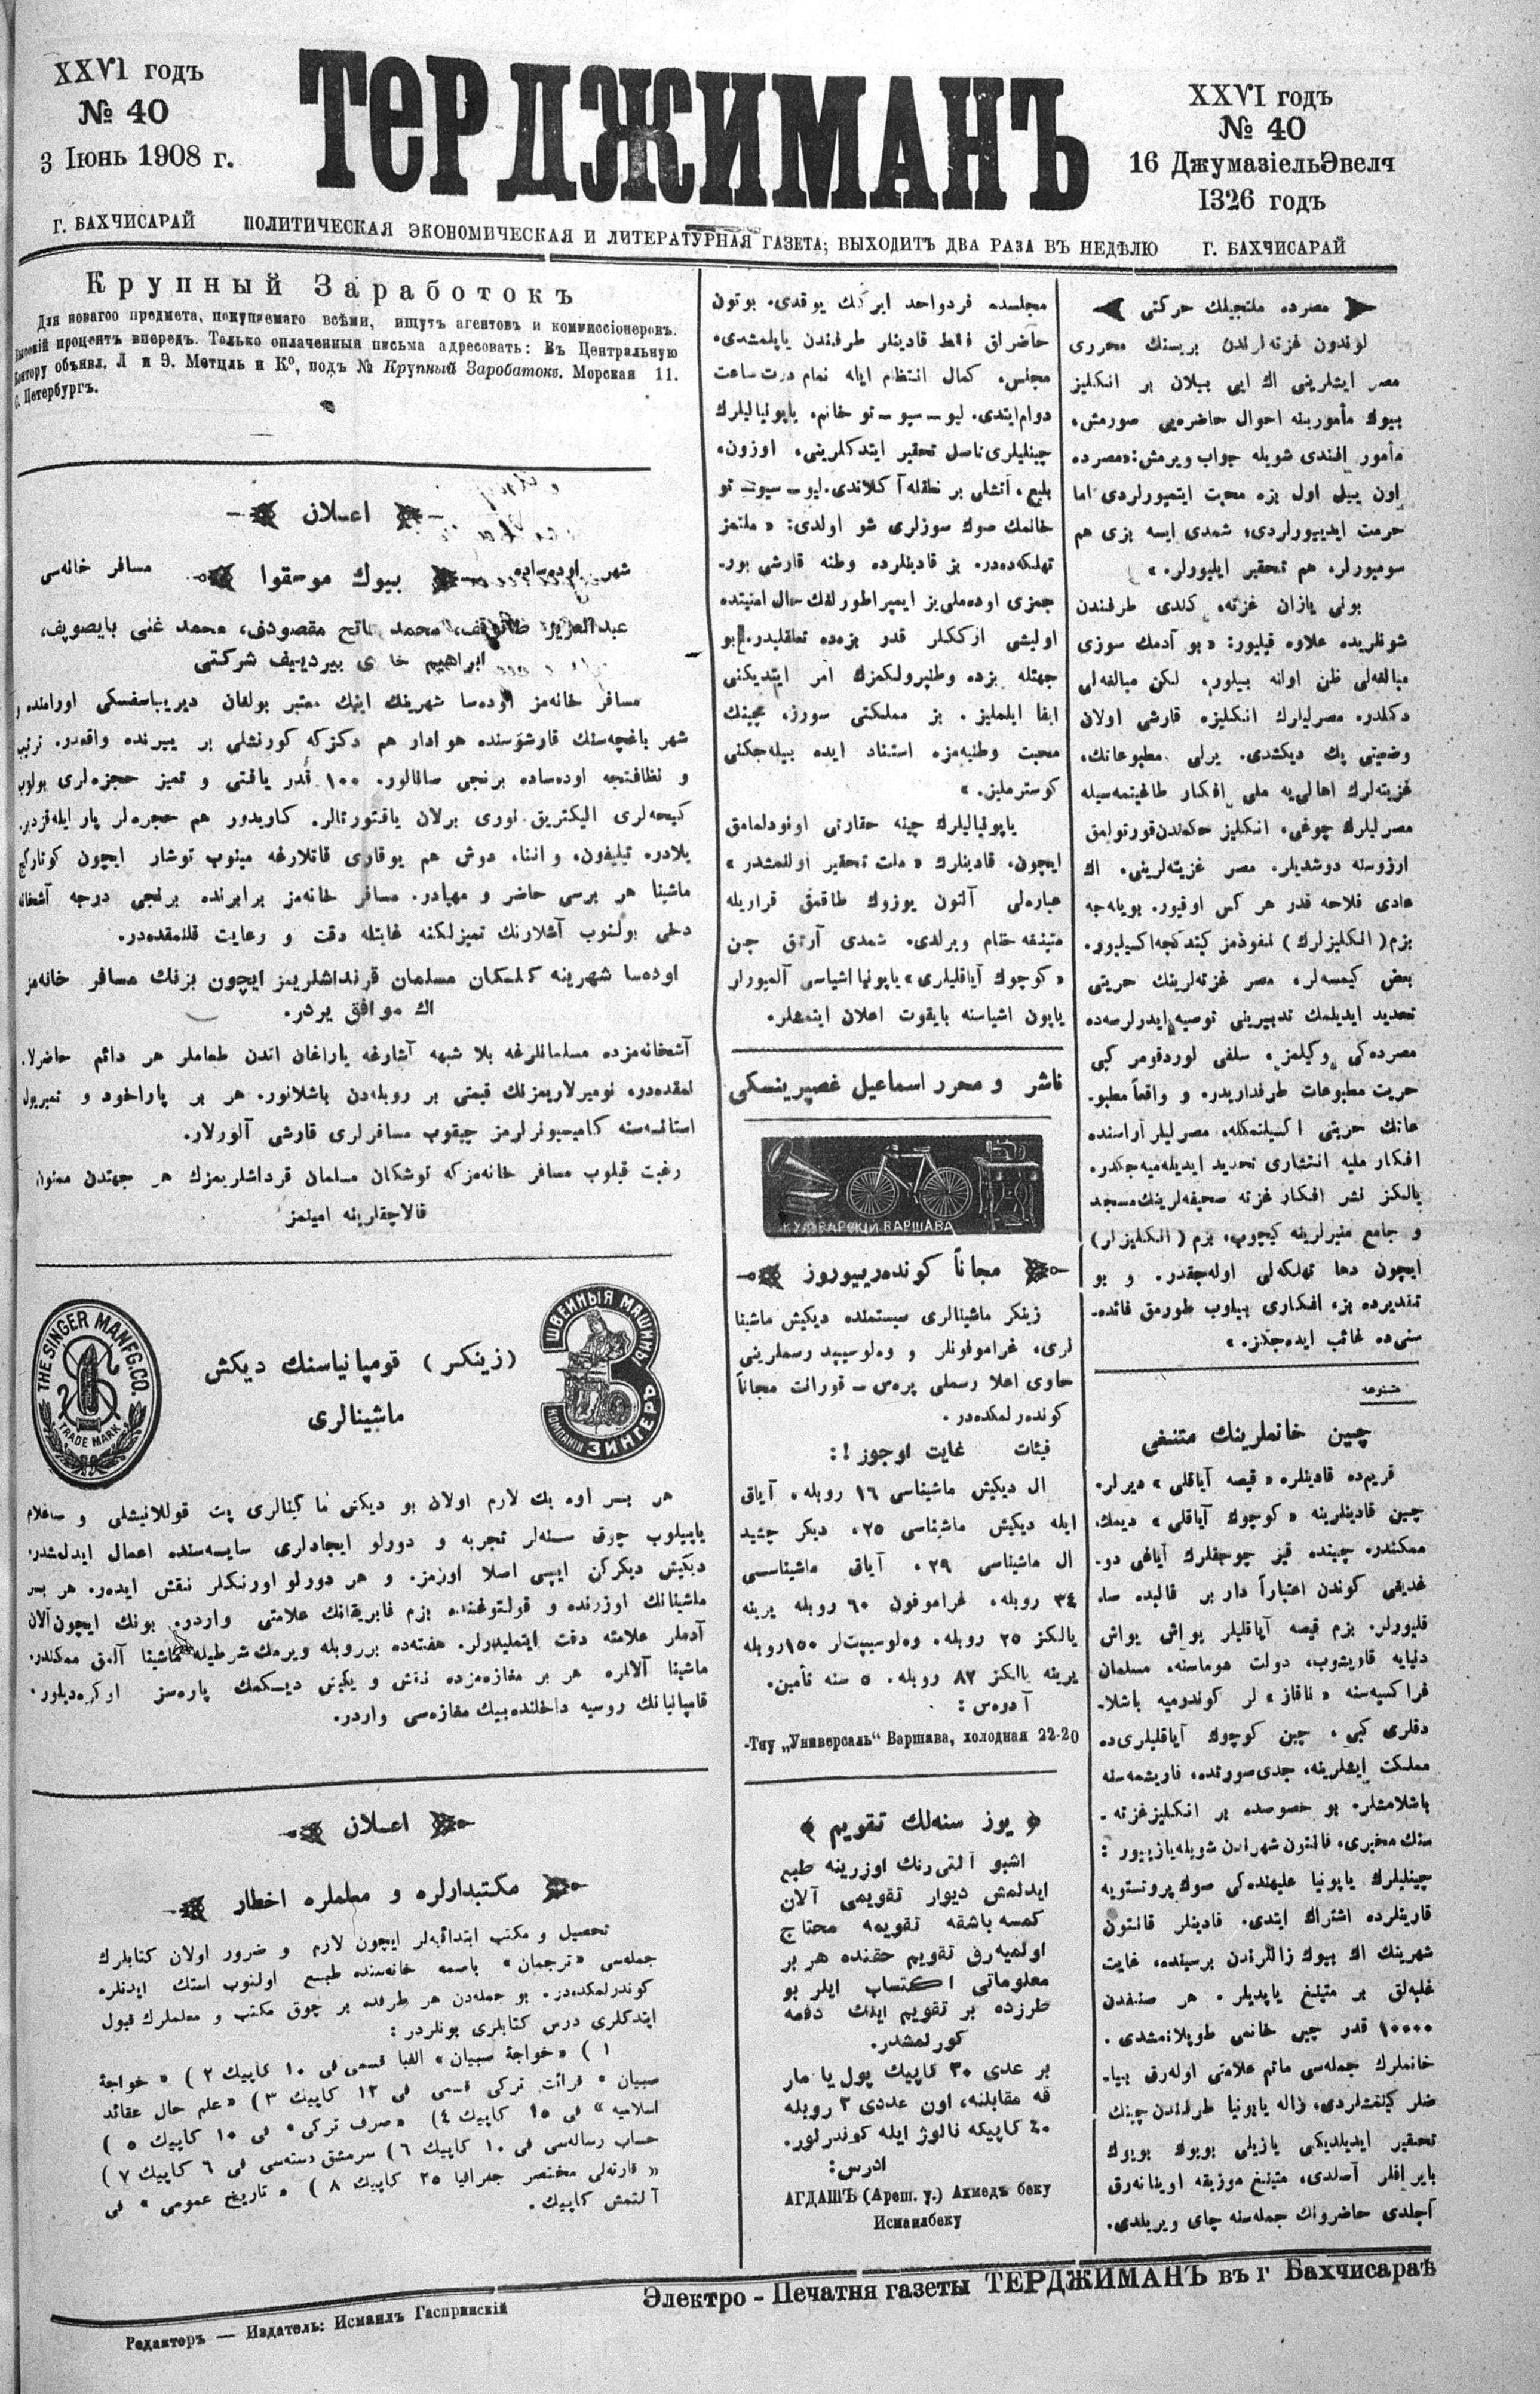 XXVI годъ
№ 40
3 Іюнь 1908 г.
ТЕРДЖИМАНЪ
XXVI годъ
№ 40
16 ДжумазіельЭвелч
1326 годъ
Г. БАХЧИСАРАЙ ПОЛИТИЧЕСКАЯ ЭКОНОМИЧЕСКАЯ И ЛИТЕРАТУРНАЯ ГАЗЕТА; ВЫХОДИТЪ ДВА РАЗА ВЪ НЕДѢЛЮ Г. БАХЧИСАРАЙ
مصرده ملتجيلك حركتى
لوندون غزته‌لرندن بريسنك محررى
مصر ايشلرينى اك ايى بيلان بر انكليز
بيوك مأمورينه احوال حاضره‌يى صورمش،
مأمور افندى شويله جواب ويرمش: «مصرده
اون ييل اول بزه محبت ايتميورلردى اما
حرمت ايدييورلردى؛ شمدى ايسه بزى هم
سوميورلر، هم تحقير ايليورلر. »
بونى يازان غزته، كندى طرفندن
شونلريده علاوه قيليور: «بو آدمك سوزى
مبالغه‌لى ظن اولنه بيلور، لكن مبالغه‌لى
دكلدر. مصرليلرك انكليزه قارشى اولان
وضعيتى پك ديكشدى. يرلى مطبوعاتك،
غزيته‌لرك اهالى‌يه ملى افكار طاغيتمه‌سيله
مصرليلرك چوغى، انكليز حكمندن قورتولمق
ارزوسنه دوشديلر. مصر غزيته‌لرينى، اك
عادى فلاحه قدر هر كس اوقيور. بويله‌جه
بزم (انكليزلرك) نفوذمز كيتدكجه اكسيليور.
بعض كيمسه‌لر، مصر غزته‌لرينك حريتى
تحديد ايديلمك تدبيرينى توصيه ايدرلرسه‌ده
مصرده‌كى وكيلمز، سلفى لوردقومر كبى
حريت مطبوعات طرفداريدر، و واقعاً مطبو-
عاتك حريتى اكسيلتمكله، مصرليلر آراسنده
افكار مليه انتشارى تحديد ايديله‌ميه‌جكدر.
يالكز نشر افكار غزته صحيفه‌لرينك مسجد
و جامع منبرلرينه كيچوب، بزم (انكليزلر)
ايچون دها تهلكه‌لى اوله‌جقدر. و بو
تقديرده بز، افكارى بيلوب طورمق فائده-
سنى‌ده غائب ايده‌جكز. »
متنوعه
چين خانملرينك متنغى
قريم‌ده قادينلره «قيصه آياقلى» ديرلر.
چين قادينلرينه «كوچوك آياقلى» ديمك،
ممكندر. چينده قيز چوجقلرك آياغى دو-
غديغى كوندن اعتباراً دار بر قالبده صا-
قليورلر. بزم قيصه آياقليلر يواش يواش
دنيايه قاريشوب، دولت دوماسنه، مسلمان
فراكسيه‌سنه «ناقاز» لر كوندرميه باشلا-
دقلرى كبى، چين كوچوك آياقليلرى‌ده
مملكت ايشلرينه، جدى صورتده، قاريشمه‌سنه
باشلامشلر. بو خصوصده بر انكليز غزته-
سنك مخبرى، قانتون شهرندن شويله يازييور:
چينليلرك ياپونيا عليهنده‌كى صوك پروتستويه
قارينلرده اشتراك ايتدى. قادينلر قانتون
شهرينك اك بيوك زاللرندن برسينده، غايت
غلبه‌لق بر متينغ ياپديلر. هر صنفدن
١٠٠٠٠ قدر چين خانمى طوپلانمشدى.
خانملرك جمله‌سى ماتم علامتى اوله‌رق بيا-
ضلر كينمشلردى. زاله ياپونيا طرفندن چينك
تحقير ايديلديكى يازيلى بويوك بويوك
بايراقلر آصلدى، متينغ موزيقه اوينانه‌رق
آچلدى حاضرونك جمله‌سنه چاى ويريلدى.
مجلسده فردواحد ايركك يوقدى. بوتون
حاضرلق فقط قادينلر طرفندن ياپلمشدى.
مجلس، كمال انتظام ايله تمام درت ساعت
دوام ايتدى. ليو - سيو - تو خانم، ياپونياليلرك
چينليلرى ناصل تحقير ايتدكلرينى، اوزون،
بليغ، آتشلى بر نطقله آكلاتدى. ليو - سيو - تو
خانمك صوك سوزلرى شو اولدى: «ملتمز
تهلكه‌ده‌در. بز قادينلرده وطنه قارشى بور-
جمزى اوده‌ملى‌يز ايمپراطورلقك حال امنيتده
اوليشى اركلكلر قدر بزه‌ده تعلقليدر. بو
جهتله بزده وطنپرولكمزك امر ايتديكنى
ايفا ايلمليز. بز مملكتى سورز، چينك
محبت وطنيه‌مزه استناد ايده بيله‌جكنى
كوسترمليز. »
ياپونياليلرك چينه حقارتى اونودلمامق
ايچون، قادينلرك «ملت تحقير اولنمشدر»
عباره‌لى آلتون يوزوك طاقمق قراريله
متينغه ختام ويرلدى. شمدى آرتق چن
«كوچوك آياقليلرى» ياپونيا اشياسى آلميورلر
ياپون اشياسنه بايقوت اعلان ايتمشلر.
ناشر و محرر اسماعيل غصپرينسكى
КУЛВАРСКІЙ ВАРШАВА
مجاناً كوندرييوروز
زينكر ماشينالرى سيستمنده ديكيش ماشينا
لرى، غراموفونلر و وه‌لوسيپيد رسملرينى
حاوى اعلا رسملى پره‌س - قورانت مجاناً
كوندرلمكده‌در.
فيئات غايت اوجوز!:
ال ديكيش ماشيناسى ١٦ روبله. آياق
ايله ديكيش ماشيناسى ٢٥، ديكر چشيد
ال ماشيناسى ٢٩، آياق ماشيناسى
٣٤ روبله، غراموفون ٦٠ روبله يرينه
يالكز ٢٥ روبله. وه‌لوسيپت‌لر ١٥٠ روبله
يرينه يالكز ٨٢ روبله. ٥ سنه تأمين.
آدره‌س:
-Тву „Универсаль“ Варшава, холодная 22-20
﴿ يوز سنه‌لك تقويم ﴾
اشبو آلتى رنك اوزرينه طبع
ايدلمش ديوار تقويمى آلان
كمسه باشقه تقويمه محتاج
اولميه‌رق تقويم حقنده هر بر
معلوماتى اكتساب ايلر بو
طرزده بر تقويم ايلك دفعه
كورلمشدر.
بر عدى ٣٠ كاپيك پول يا مار
قه مقابلنه، اون عددى ٢ روبله
٤٠ كاپيكه نالوژ ايله كوندرلور.
ادرس:
АГДАШЪ (Ареш. у.) Ахмедъ беку
Исмаилбеку
Крупный Заработокъ
Для новагоо предмета, покупяемаго всѣми, ищутъ агентовъ и коммиссіонеровъ.
Высокій процентъ впередъ. Только оплаченныя письма адресовать: Въ Центральную
Контору объявл. Л и Э. Метцль и К⁰, подъ № Крупный Заробатокъ. Морская 11.
С. Петербургъ.
اعلان
شهر اوده‌ساده بيوك موسقوا مسافر خانه‌سى
عبدالعزيز، محمد فاتح مقصودف، محمد غنى بايصوپف،
ابراهيم بيرديييف شركتى
مسافر خانه‌مز اوده‌سا شهرينك اينك معتبر بولغان ديريباسفسكى اورامنده
شهر باغچه‌سنك قارشوسنده هوادار هم دكزكه كورنشلى بر ييرنده واقعدر. ترتيب
و نظافتجه اوده‌ساده برنجى صانالور. ١٠٠ قدر ياقتى و تميز حجره‌لرى بولوب
كيجه‌لرى اليكتريق نورى برلان ياقتورتالر. كاريدور هم حجره‌لر پار ايله قزدر-
يلادر، تيليفون، و اننا، دوش هم يوقارى قاتلارغه مينوب توشار ايچون كوتاركچ
ماشينا هر برسى حاضر و مهيادر. مسافر خانه‌مز برابرنده برنجى درجه آشخانه
دخى بولنوب آشلارنك تميزلكنه غايتله دقت و رعايت قلنمقده‌در.
اوده‌سا شهرينه كلمكان مسلمان قرنداشلريمز ايچون بزنك مسافر خانه‌مز
اك موافق يردر.
آشخانه‌مزده مسلمانلرغه بلا شبهه آشارغه ياراغان اتدن طعاملر هر دائم حاضرلا-
نمقده‌در، نوميرلاريمزنك قيمتى بر روبله‌دن باشلانور. هر بر پاراخود و تميريول
استانسه‌سنه كاميسيونرلرمز چيقوب مسافرلرى قارشى آلورلار.
رغبت قيلوب مسافر خانه‌مزكه توشكان مسلمان قرداشلريمزك هر جهتدن ممنون
قالاچقلرينه امينمز
THE SINGER MANFG. CO.
TRADE MARK
(زينكر) قومپانياسنك ديكش
ماشينالرى
ШВЕЙНЫЯ МАШИНЫ
КОМПАНІЯ ЗИНГЕРЪ
هر بر اوه بك لازم اولان بو ديكش ماكينالرى پك قوللانيشلى و صاغلام
ياپيلوب چوق سنه‌لر تجربه و دورلو ايجادلرى سايه‌سنده اعمال ايدلمشدر.
ديكيش ديكركن ايپى اصلا اوزمز. و هر دورلو اورنكلر نقش ايده‌ر. هر بر
ماشينانك اوزرنده و قولتوغنده بزم فابريقانك علامتى واردر. بونك ايچون آلان
آدملر علامته دقت ايتمليدرلر. هفته‌ده بر روبله ويرمك شرطيله ماشينا آلمق ممكندر.
ماشينا آلانلره هر بر مغازه‌مزده نقش و يكيش ديكمك پاره‌سز اوكره‌ديلور.
قامپانيانك روسيه داخلنده بيك مغازه‌سى واردر.
اعلان
مكتبدارلره و معلملره اخطار
تحصيل و مكتب ابتدائيه‌لر ايچون لازم و ضرور اولان كتابلرك
جمله‌سى «ترجمان» باصمه خانه‌سنده طبع اولنوب استك ايدنلره
كوندرلمكده‌در. بو جمله‌دن هر طرفده بر چوق مكتب و معلملرك قبول
ايتدكلرى درس كتابلرى بونلردر:
١) «خواجهٔ صبيان» الفبا قسمى فى ١٠ كاپيك ٢) «خواجهٔ
صبيان» قرائت تركى قسمى فى ١٢ كاپيك ٣) «علم حال عقائد
اسلاميه» فى ١٥ كاپيك ٤) «صرف تركى» فى ١٠ كاپيك ٥)
حساب رساله‌سى فى ١٠ كاپيك ٦) سرمشق دسته‌سى فى ٦ كاپيك ٧)
«قارته‌لى مختصر جغرافيا ٢٥ كاپيك ٨) «تاريخ عمومى» فى
آلتمش كاپيك.
Редакторъ — Издатель: Исмаилъ Гаспринскій
Электро - Печатня газеты ТЕРДЖИМАНЪ въ г Бахчисараѣ